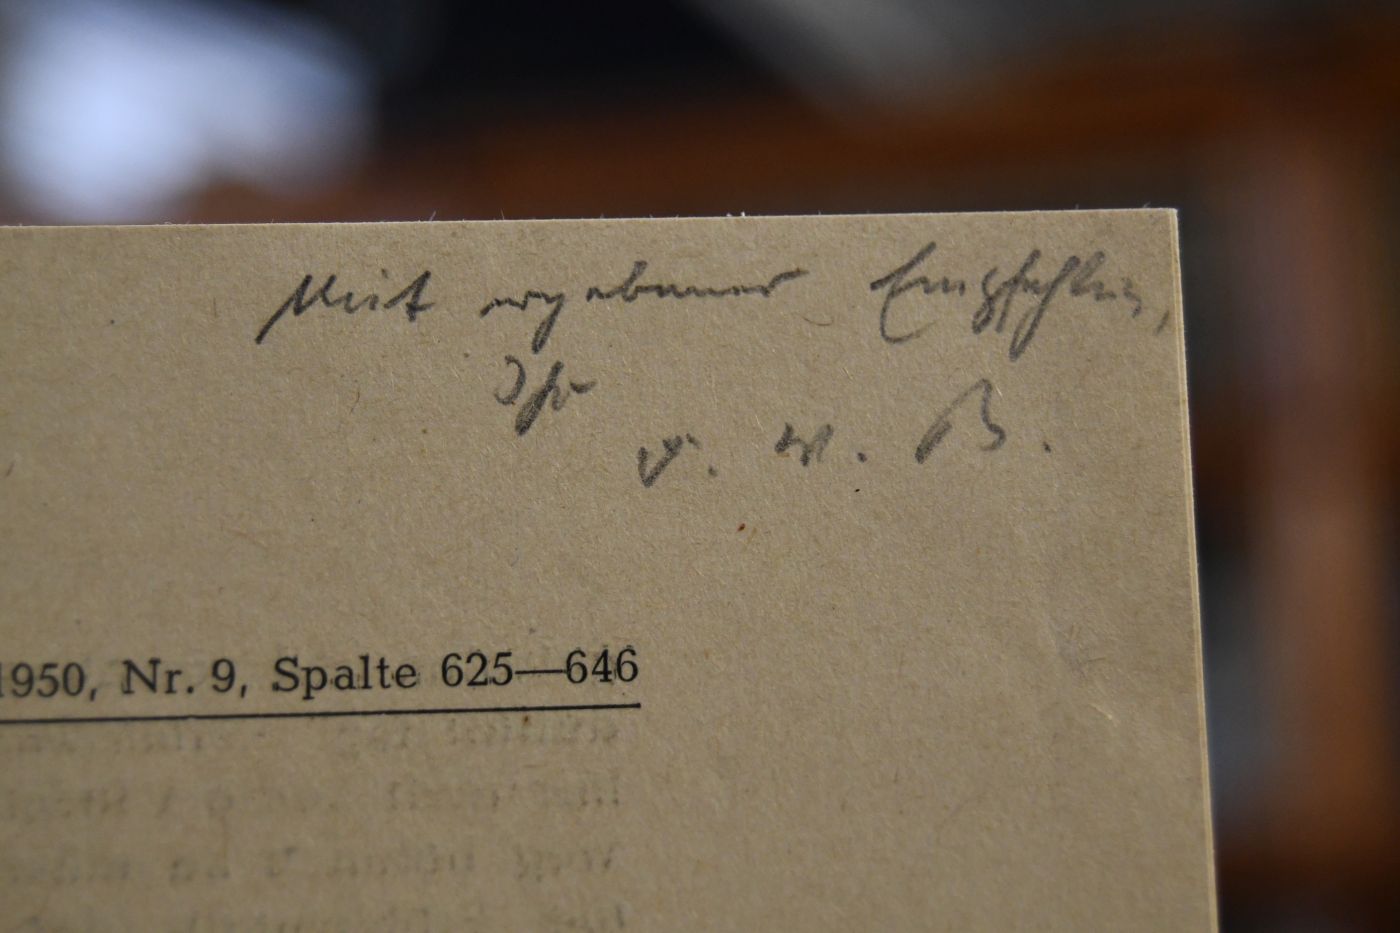 Mit ergebener Empfehlung,
Ihr
v. W. B.
1950, Nr. 9, Spalte 625—646